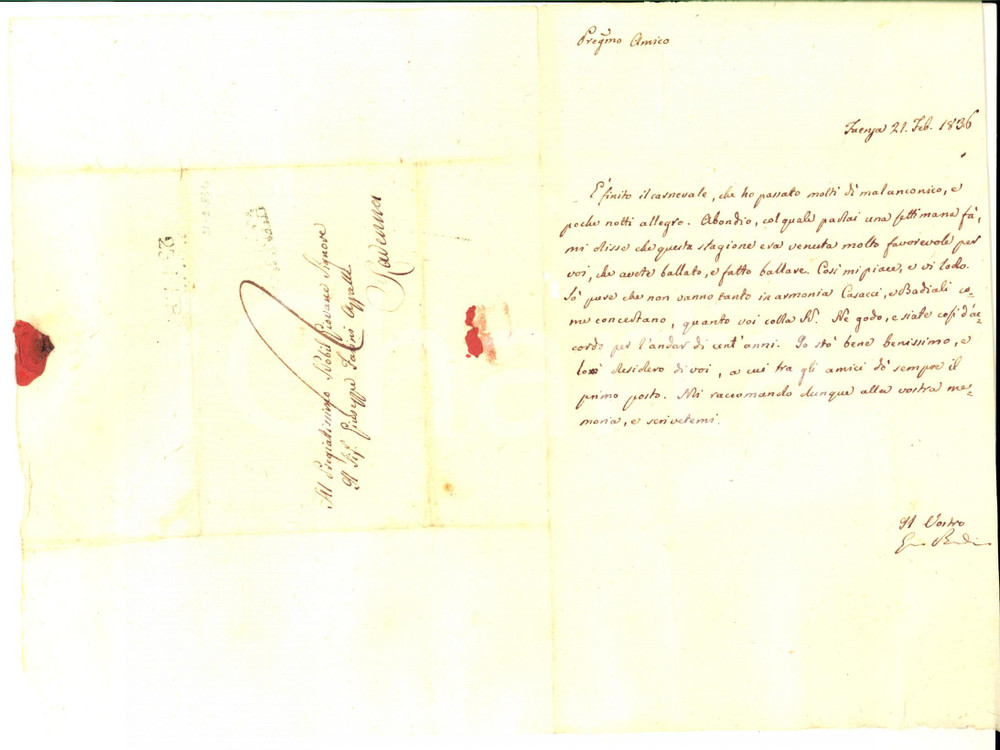 Pregmo Amico
Faenza 21. Feb. 1836
E' finito il carnevale, che ho passato molti dì malanconico, e
poche notti allegro. Abondio, col quale parlai una settimana fà,
mi disse che questa stagione era venuta molto favorevole per
voi, che avete ballato, e fatto ballare. Così mi piace, e vi lodo.
Sò pure che non vanno tanto in armonia Casacci, e Badiali co-
me concertano, quanto voi colla N. Ne godo, e siate così d'ac-
cordo per l'andar di cent'anni. Io stò bene benissimo, e
desidero di voi, a cui tra gli amici dò sempre il
primo posto. Mi raccomando dunque alla vostra me-
moria, e scrivetemi.
Il Vostro
Al Pregiatissimo Nobil Giovane Signore
Il Sig. Giuseppe
Ravenna